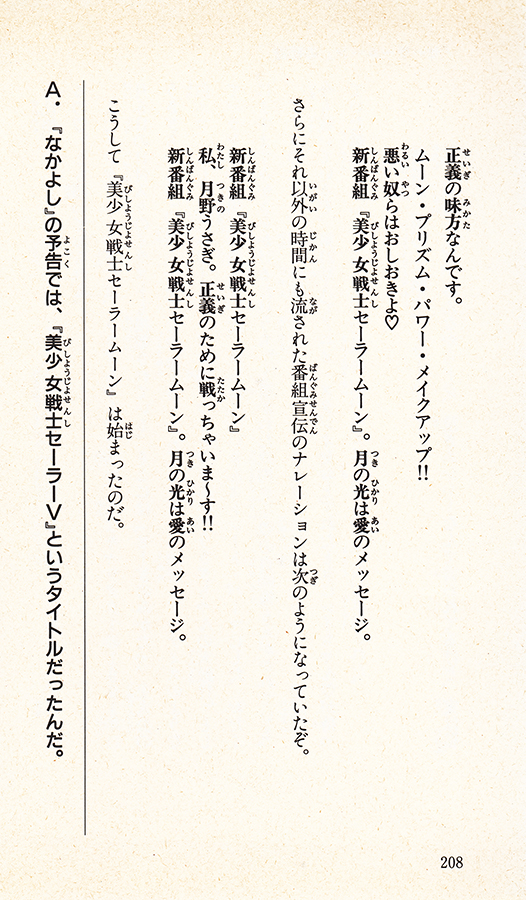 正義の味方なんです。
ムーン・プリズム・パワー・メイクアップ!!
悪い奴らはおしおきよ♡
新番組『美少女戦士セーラームーン』。月の光は愛のメッセージ。
さらにそれ以外の時間にも流された番組宣伝のナレーションは次のようになっていたぞ。
新番組『美少女戦士セーラームーン』
私、月野うさぎ。正義のために戦っちゃいま〜す!!
新番組『美少女戦士セーラームーン』。月の光は愛のメッセージ。
こうして『美少女戦士セーラームーン』は始まったのだ。
A.『なかよし』の予告では、『美少女戦士セーラーV』というタイトルだったんだ。
208